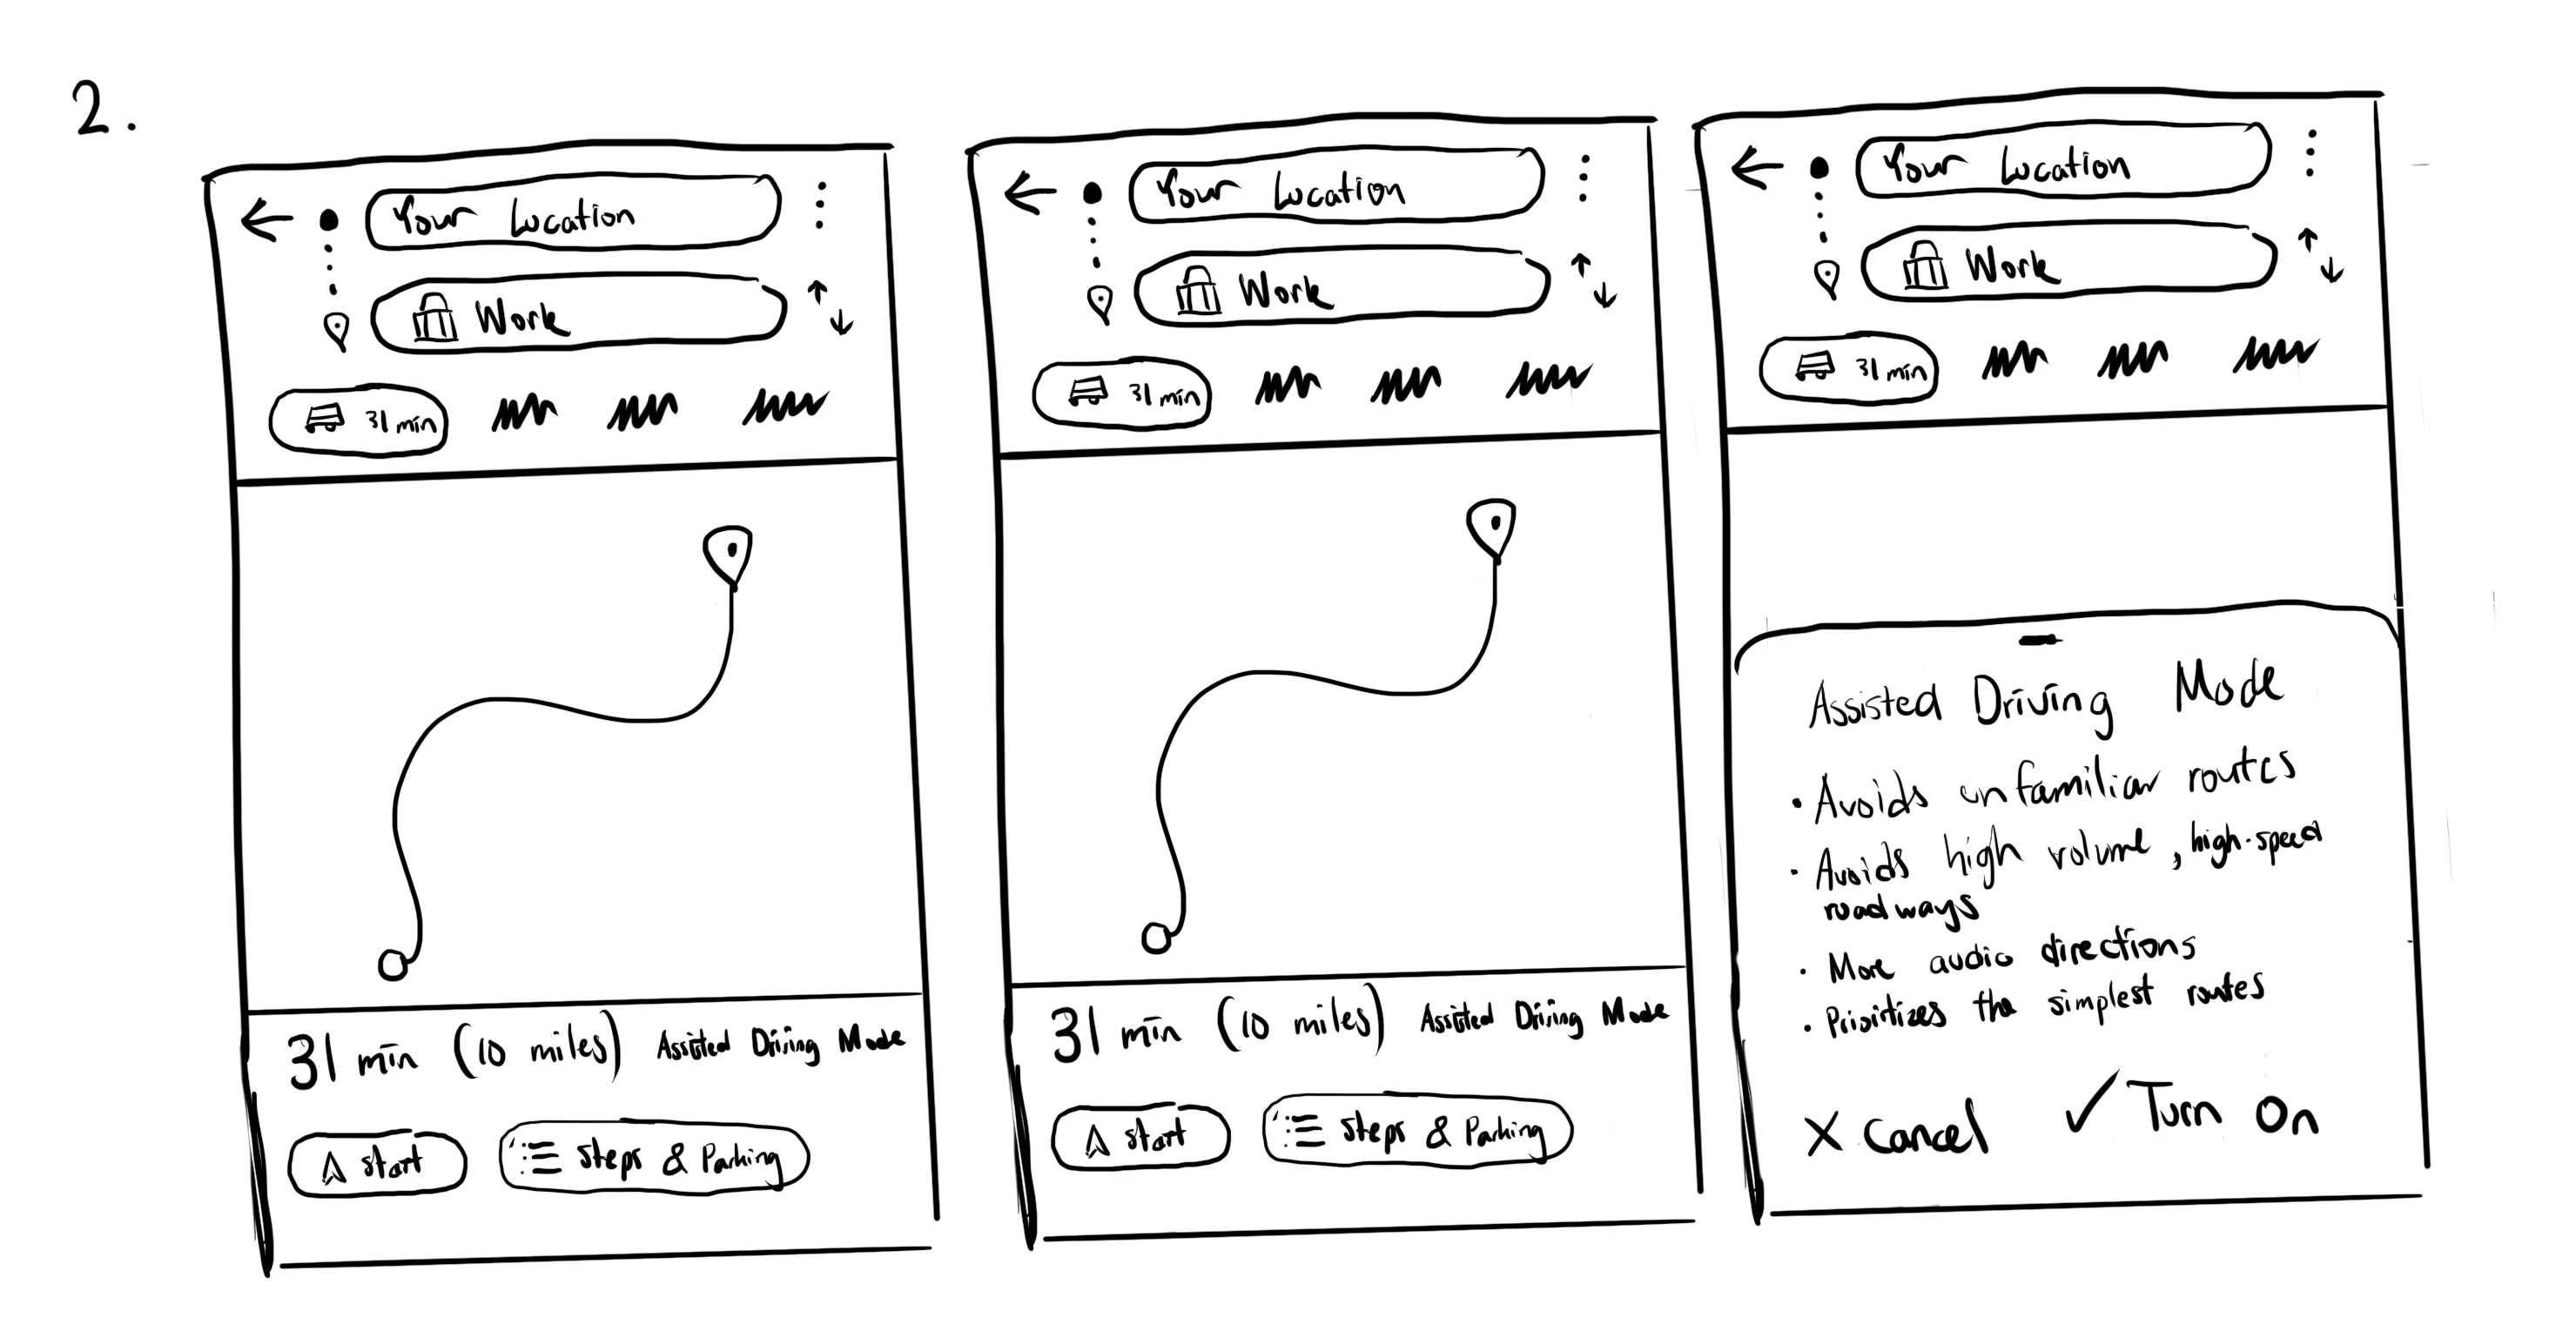 2.
Your Location
Work
31 min
31 min (10 miles) Assisted Driving Mode
Start
Steps & Parking
Your Location
Work
31 min
31 min (10 miles) Assisted Driving Mode
Start
Steps & Parking
Your Location
Work
31 min
Assisted Driving Mode
• Avoids unfamiliar routes
• Avoids high volume, high-speed
roadways
• More audio directions
• Prioritizes the simplest routes
X Cancel ✓ Turn On